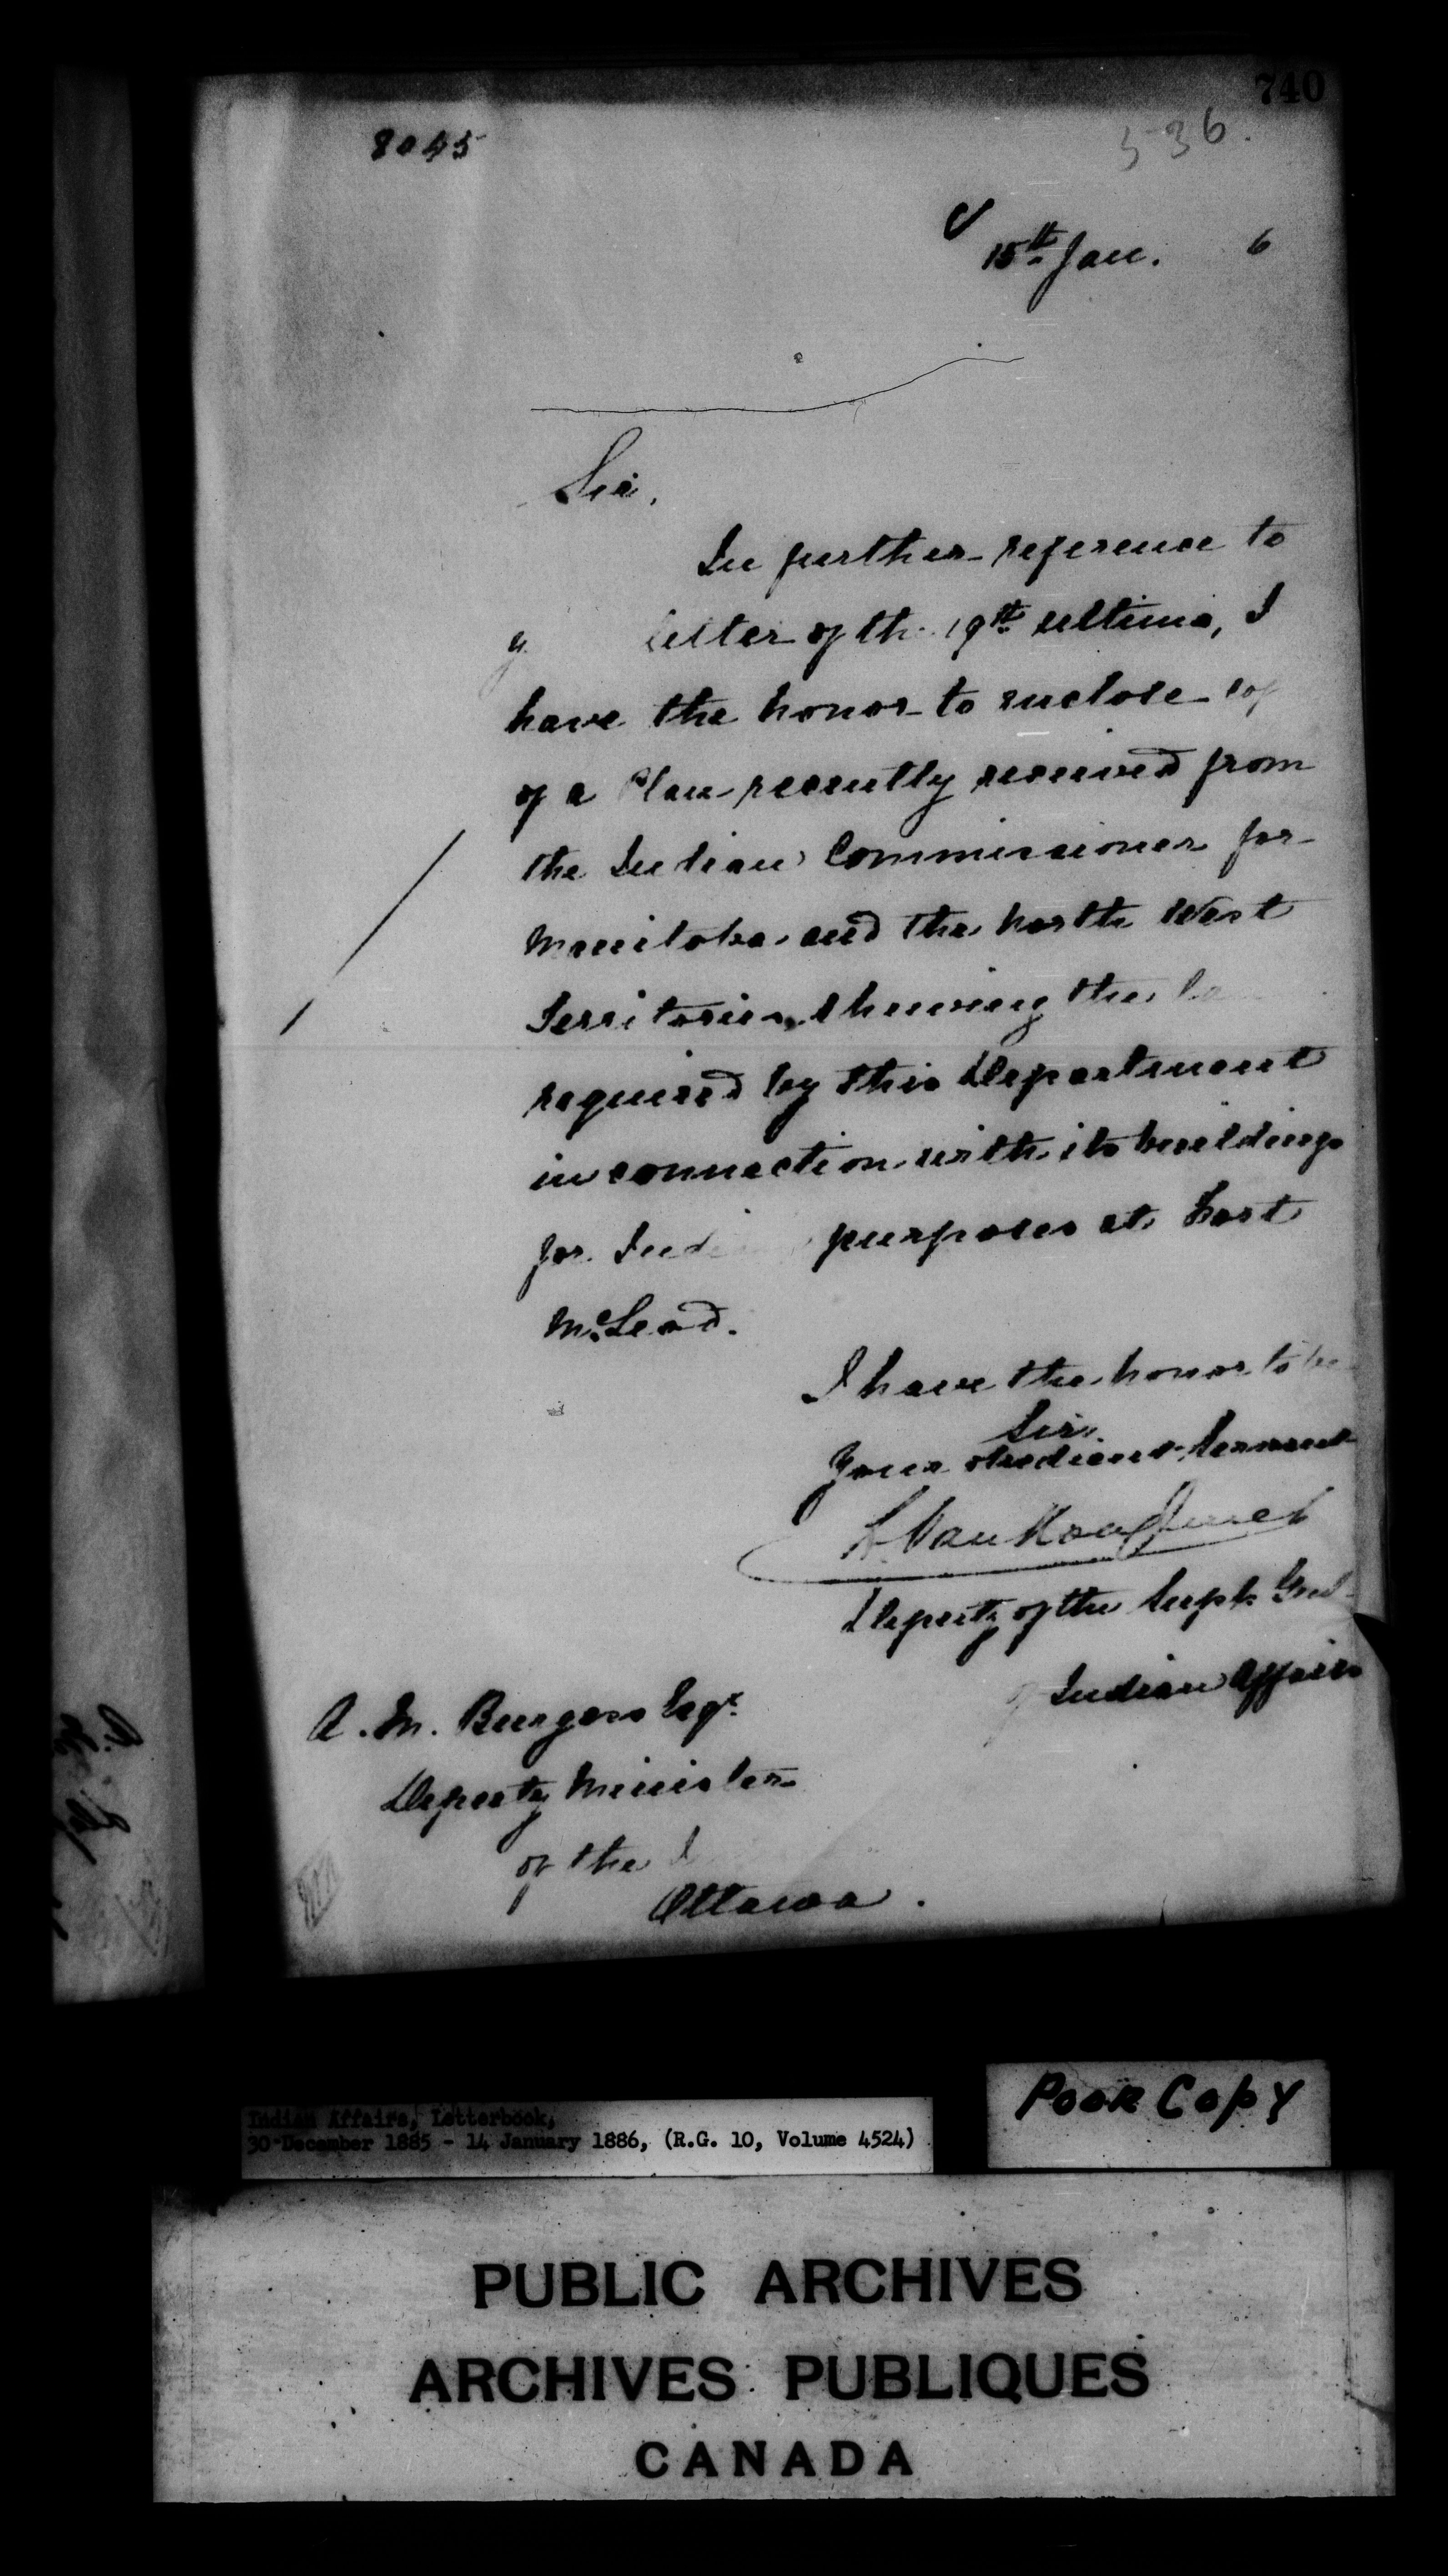 740
536.
8045
15th Jan. 6
Sir,
In further reference to
letter of the 19th ultimo, I
have the honor to enclose cop
of a Plan recently received from
the Indian Commissioner for
Manitoba and the North West
Territories, shewing the
required by this Department
in connection with its buildings
for Indi purposes at Fort
McLeod.
I have the honor to be
Sir,
Your obedient Servant
L. VanKoughnet
Deputy of the Supt. Genl
of Indian Affairs
A. M. Burgess Esqr.
Deputy Minister
of the I
Ottawa.
Poor Copy
Indian Affairs, Letterbook,
30 December 1885 - 14 January 1886, (R.G. 10, Volume 4524)
PUBLIC ARCHIVES
ARCHIVES PUBLIQUES
CANADA